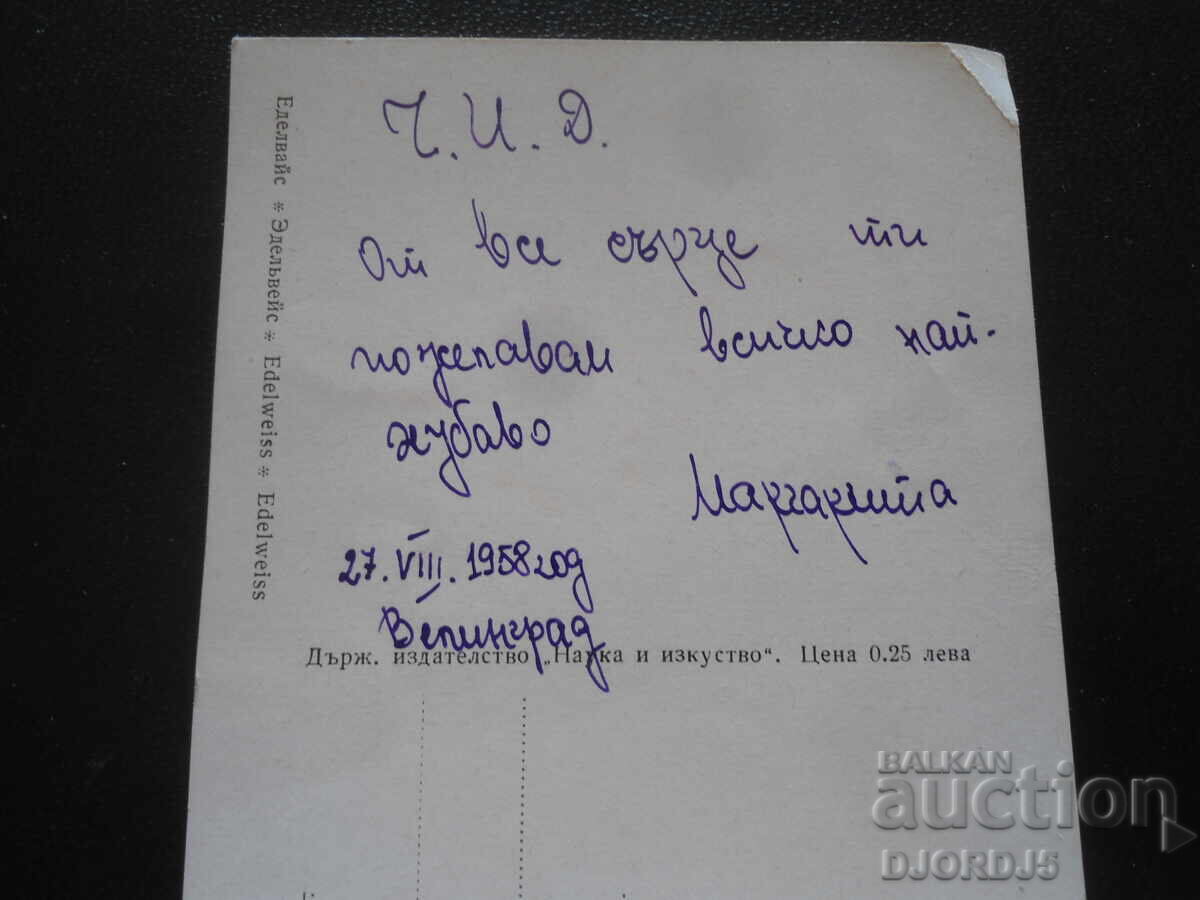 Ч.И.Д.
От все сърце ти
пожелавам всичко най-
хубаво
Маргарита
27.VIII.1958 год
Велинград
Държ. издателство „Наука и изкуство“. Цена 0.25 лева
Еделвайс * Эдельвейс * Edelweiss * Edelweiss
BALKAN
auction
DJORDJ5